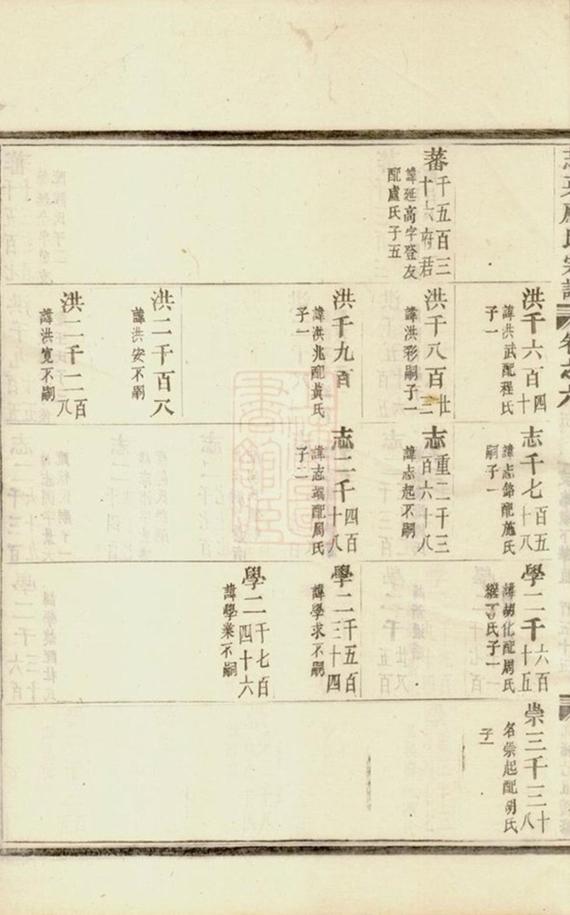 蕃千五百三十六府君
諱延高字登友
配盧氏子五
洪千六百十四
諱洪武配程氏
子一
洪千八百廿二
諱洪彩嗣子一
洪千九百
諱洪兆配黃氏
子一
洪二千百八
諱洪安不嗣
洪二千二百八
諱洪寬不嗣
志千七百五十八
諱志銘配施氏
嗣子一
志重二千三百六十八
諱志起不嗣
志二千四百十八
配周氏
子二
學二千六百十五
諱胡化配周氏
子一
學二千五百三十四
諱學求不嗣
學二千七百四十六
諱學業不嗣
崇三千三十八
名崇起配胡氏
子一